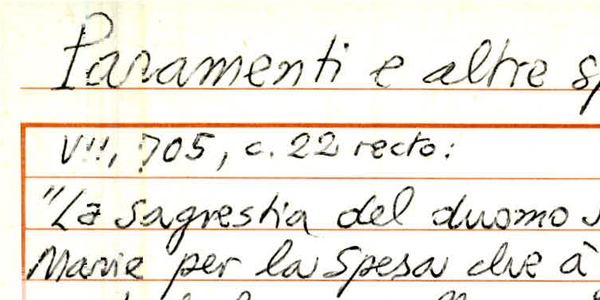 Paramenti e altre sp
VII, 705, c. 22 recto:
"La sagrestia del duomo
Marie per la spesa che à